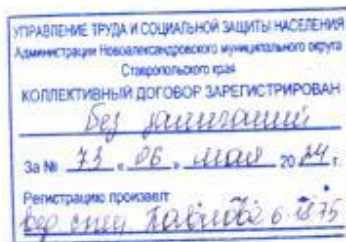 УПРАВЛЕНИЕ ТРУДА И СОЦИАЛЬНОЙ ЗАЩИТЫ НАСЕЛЕНИЯ
Администрации Новоалександровского муниципального округа
Ставропольского края
КОЛЛЕКТИВНЫЙ ДОГОВОР ЗАРЕГИСТРИРОВАН
без замечаний
За № 73 « 06 » мая 2024 г.
Регистрацию произвел
вед спец. Павлова 6-28-75